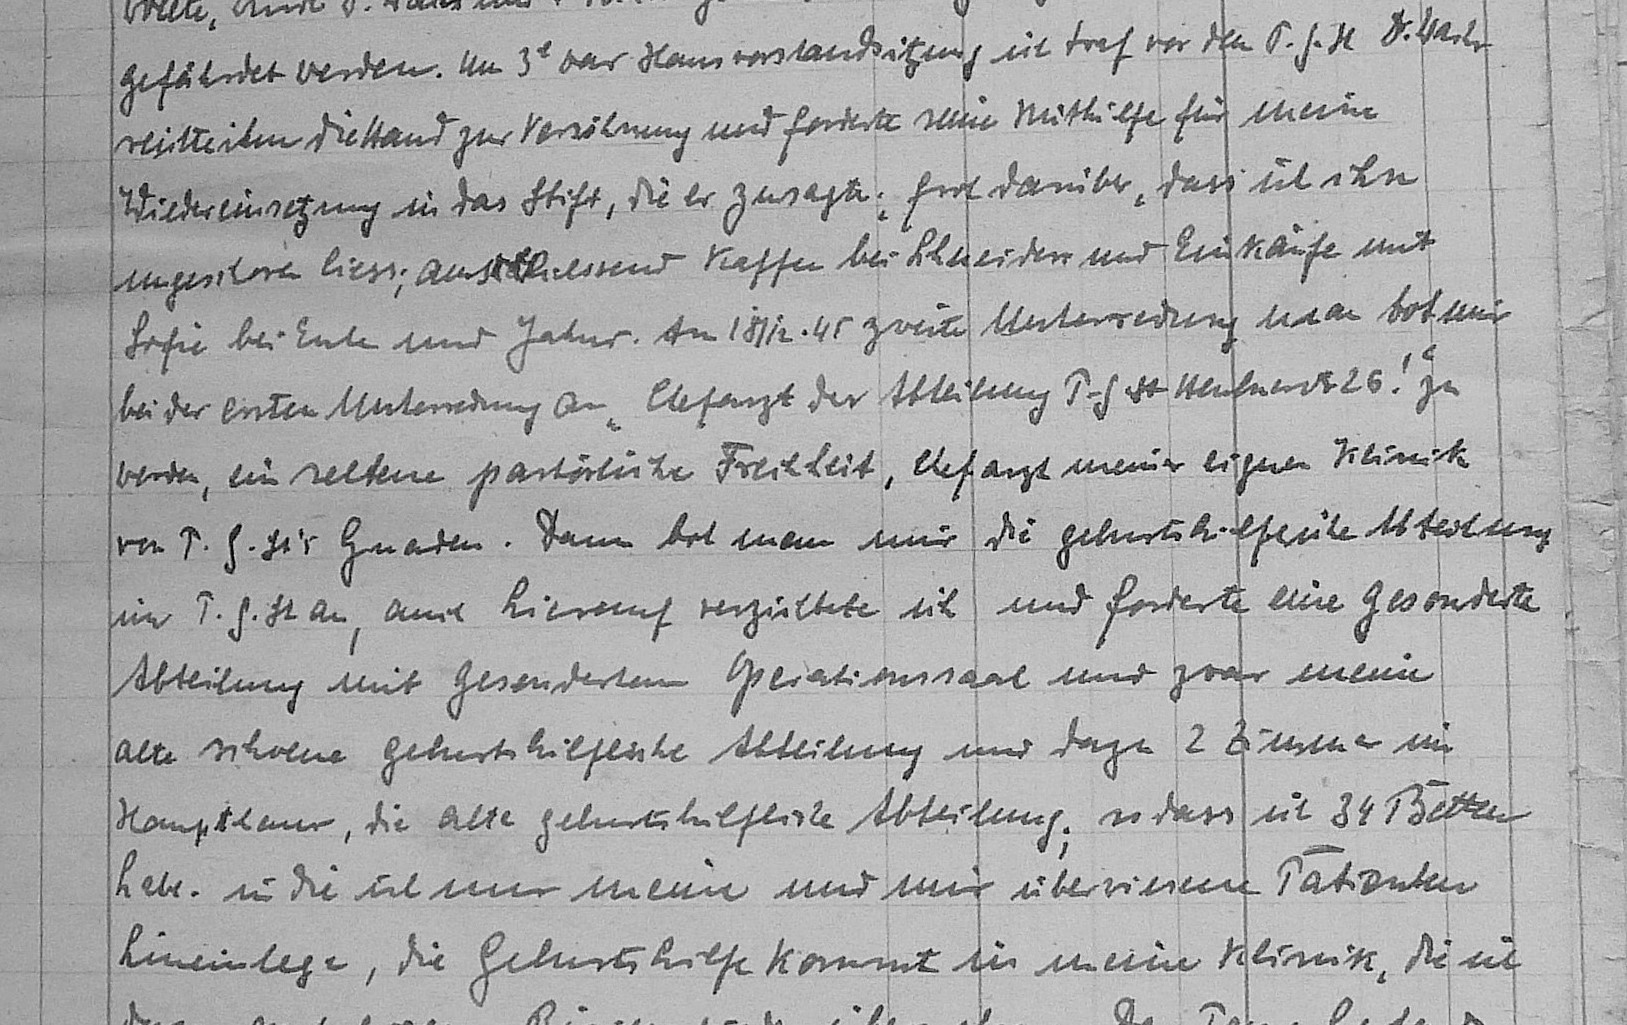 gefährdet werden. Um 3h war Hausvorstandsitzung ich traf vor dem T. G. H Dr. Wachs
reichte ihm die Hand zur Versöhnung und forderte seine Mithilfe für meine
Wiedereinsetzung in das Stift, die er zusagte; froh darüber, dass ich ihn
ungeschoren liess; anschliessend Kaffee bei Schneiders und Einkäufe mit
Sofie bei Ente und Jahns. Am 18/12.45 zweite Unterredung man bot mir
bei der ersten Unterredung an „Chefarzt der Abteilung T. G. H 26!“ zu
werden, ein seltene pastörliche Frechheit, Chefarzt meiner eignen Klinik
von T. G. H's Gnaden. Dann bot man mir die geburtshilfliche Abteilung
im T. G. H an, auch hierauf verzichtete ich und forderte eine gesonderte
Abteilung mit gesondertem Operationssaal und zwar meine
alte schoene geburtshilfliche Abteilung und dazu 2 Zimmer im
Haupthaus, die alte geburtshilfliche Abteilung, sodass ich 34 Betten
habe. in die ich nur meine und mir überwiesene Patienten
hineinlege, die Geburtshilfe kommt in meine Klinik, die ich